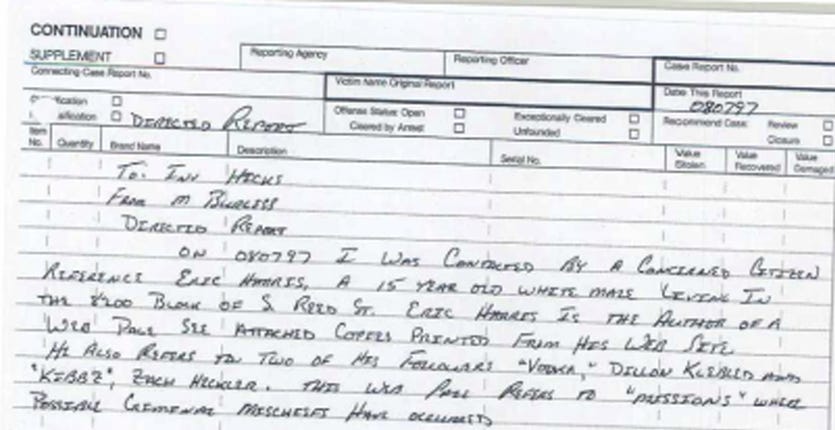 CONTINUATION
SUPPLEMENT
Reporting Agency
Reporting Officer
Case Report No.
Connecting Case Report No.
Victim Name Original Report
Date This Report
080797
ification
Offense Status: Open
Exceptionally Cleared
Recommend Case: Review
ification
DIRECTED REPORT
Cleared by Arrest
Unfounded
Closure
Item No. Quantity Brand Name Description Serial No. Value Stolen Value Recovered Value Damaged
TO: INV HICKS
FROM M BURGESS
DIRECTED REPORT
ON 080797 I WAS CONTACTED BY A CONCERNED CITIZEN
REFERENCE ERIC HARRIS, A 15 YEAR OLD WHITE MALE LIVING IN
THE 8200 BLOCK OF S. REED ST. ERIC HARRIS IS THE AUTHOR OF A
WEB PAGE SEE ATTACHED COPIES PRINTED FROM HIS WEB SITE
HE ALSO REFERS TO TWO OF HIS FOLLOWERS "VODKA," DILLON KLEBLED AND
"KIBBZ", ZACH HECKLER. THIS WEB PAGE REFERS TO "MISSIONS" WHERE
POSSIBLE CRIMINAL MISCHIEFS HAVE OCCURRED